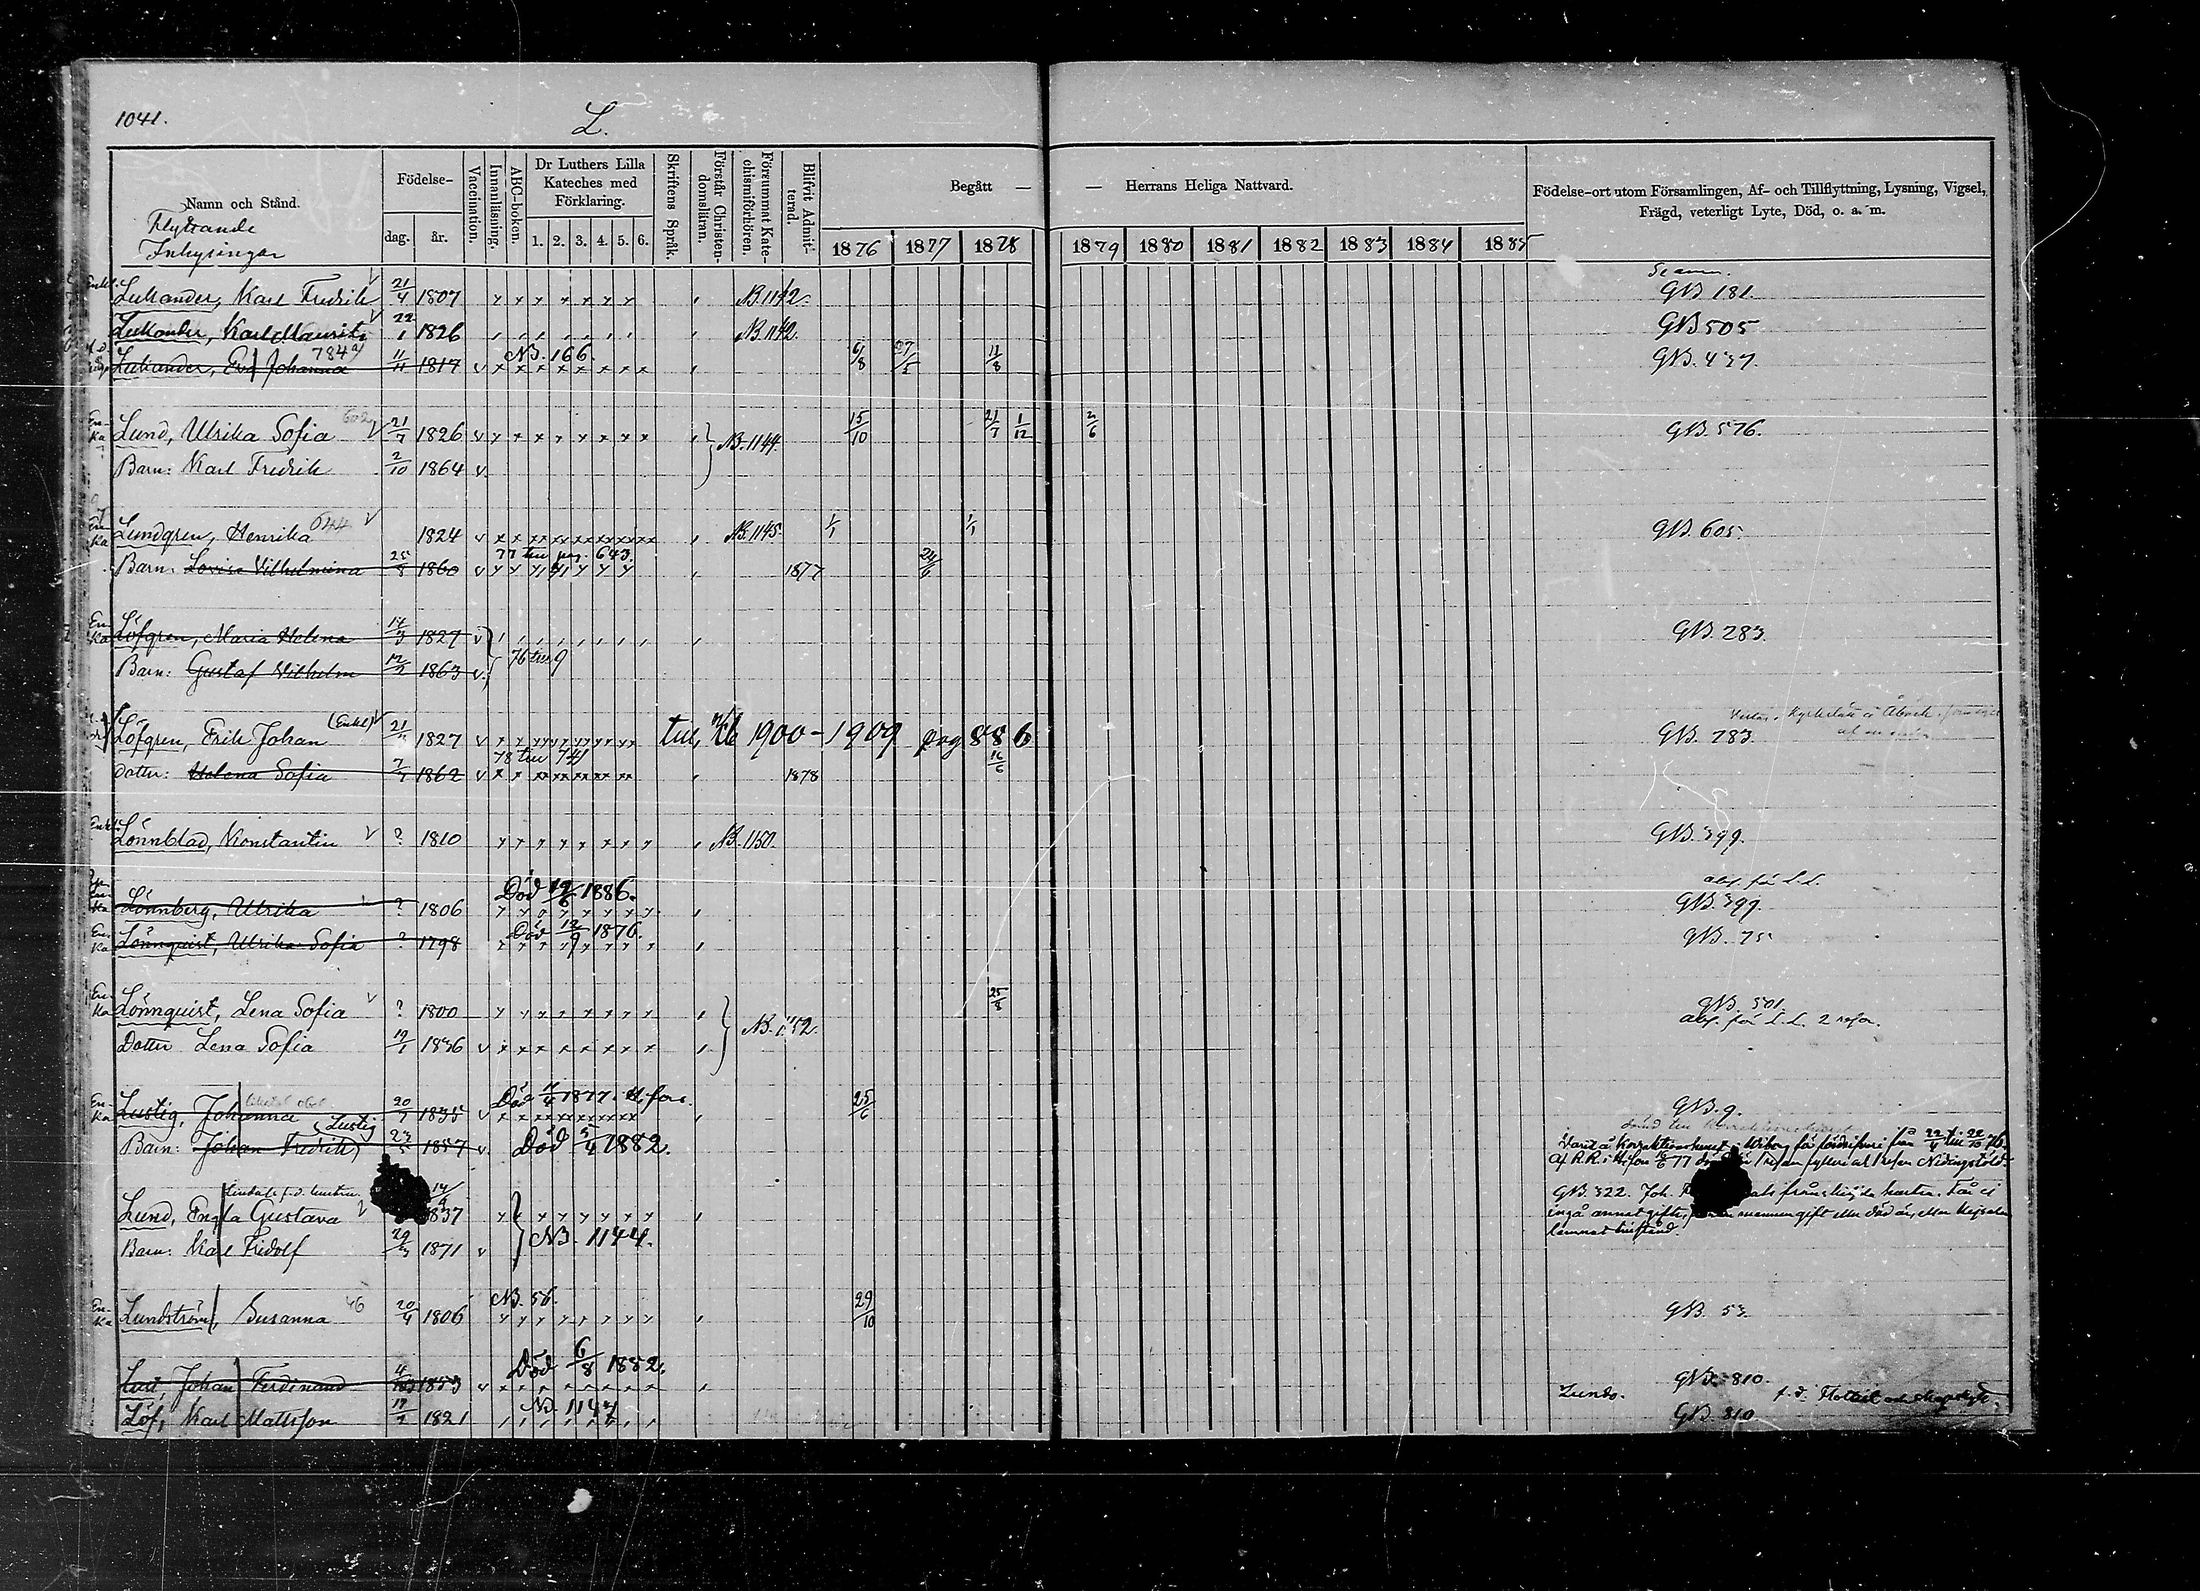 1041.
L.
Namn och Stånd.
Flyttande
Inhysingar
Födelse-
dag.
år.
Vaccination.
Innanläsning.
ABC-boken.
Dr Luthers Lilla
Kateches med
Förklaring.
1. 2. 3. 4. 5. 6.
Skriftens Språk.
Förstår Christen-
domsläran.
Försummat Kate-
chismiförhören.
Blifvit Admit-
terad.
Begått — — Herrans Heliga Nattvard.
1876 1877 1878 1879 1880 1881 1882 1883 1884 1885
Födelse-ort utom Församlingen, Af- och Tillflyttning, Lysning, Vigsel,
Frägd, veterligt Lyte, Död, o. a. m.
Enkl. Lukander, Karl Fredrik 21/4 1807 NB. 1142. GB 181.
Lukander, Karl Maurits 22/1 1826 NB. 1142. GB 505
784
Lukander, Eva Johanna 11/11 1817 v NB. 166. 6/8 27/5 11/8 GB. 437.
Enka Lund, Ulrika Sofia 602 21/7 1826 v NB. 1144. 15/10 21/7 1/12 2/6 GB. 576.
Barn: Karl Fredrik 2/10 1864 v
Enka Lundgren, Henrika 644 1824 v NB. 1145. 1/1 1/1 GB. 605.
77 till pag. 643.
Barn: Lovisa Vilhelmina 25/8 1860 v 1877 24/6
Enka Löfgren, Maria Helena 14/3 1827 v GB. 283.
76 till 9
Barn: Gustaf Vilhelm 1863 v
Löfgren, Erik Johan (Enkl) 1827 v till 1900-1909 pag 886 GB. 283.
78 till 741
Dotter: Helena Sofia 7/7 1862 v 1878 16/6
Enkl. Lönnblad, Konstantin ? 1810 NB. 1150. GB. 399.
Död 1886.
Enka Lönnberg, Ulrika ? 1806 GB. 399.
Död 12/9 1876.
Enka Lönnquist, Ulrika Sofia ? 1798 GB. 75
Enka Lönnquist, Lena Sofia ? 1800 NB. 1152. 25/8 GB. 501.
Dotter Lena Sofia 19/1 1836 v
Död 1877 H:fors.
Enka Lustig, Johanna 20/7 1835 v 25/6 GB. 9.
Barn: Johan Fredrik (Lustig) 23/5 1857 v. Död 5/4 1882.
Lund, Engla Gustava 14/4 1837 GB. 322. Joh.
Barn: Karl Fridolf 29/3 1871 v NB. 1144.
Enka Lundström, Susanna 46 20/4 1806 NB. 56. 29/10 GB. 53.
Död 6/8 1882.
Lut, Johan Ferdinand 1853 v GB. 810.
Lundo.
Löf, Karl Mattsson 1821 NB. 1147 GB. 810